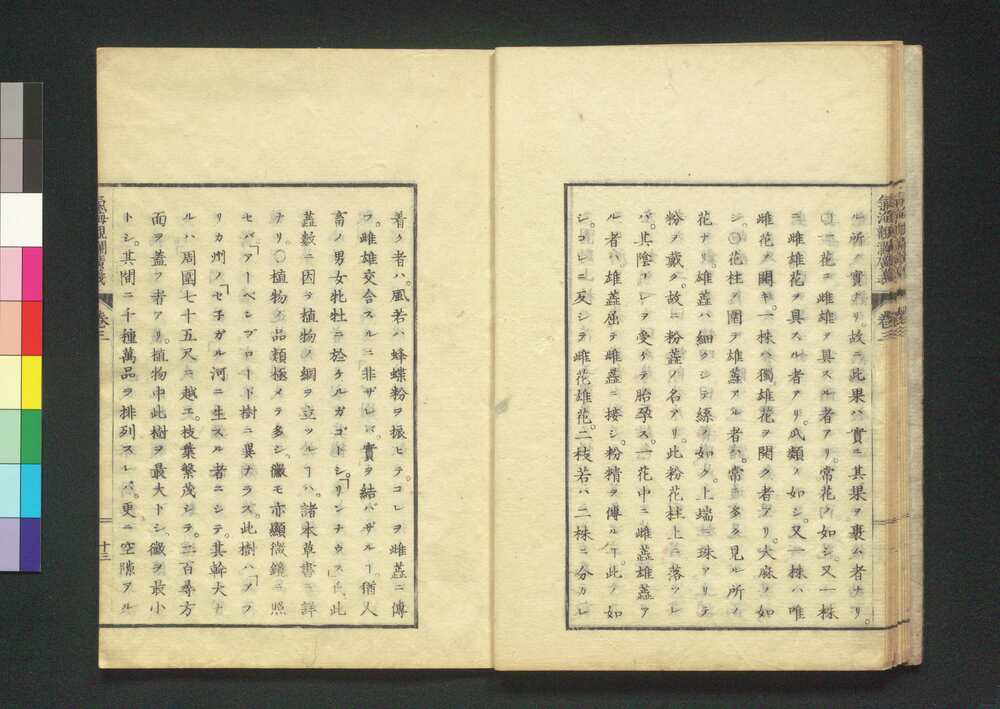 ル所ノ實ナリ。故ニ此果ハ實ニ其果ヲ裹ム者ナリ。
〇一花ニ雌雄ヲ具スル者アリ。常花ノ如シ。又一株
ニ雌雄花ヲ具スル者アリ。瓜類ノ如シ。又一株ハ唯
雌花ヲ開キ。一株ハ獨雄花ヲ開ク者アリ。大麻ノ如
シ。〇花柱ヲ圍テ雄蕋アル者ハ。常ニ多ク見ル所ノ
花ナリ。雄蕋ハ細クシテ絲ノ如ク。上端ニ珠アリテ
粉ヲ戴ク。故ニ粉蕋ノ名アリ。此粉花柱上ニ落ツレ
バ。其陰コレヲ受ケテ胎孕ス。一花中ニ雌蕋雄蕋ア
ル者ハ雄蕋屈テ雌蕋ニ接シ。粉精ヲ傳ルヿ。此ノ如
シ。コレニ反シテ雌花雄花。二枝若ハ二株ニ分カレ
着ク者ハ。風若ハ蜂蝶粉ヲ振ヒテ。コレヲ雌蕋ニ傳
フ。雌雄交合スルニ非ザレバ。實ヲ結バザルヿ猶人
畜ノ男女牝牡ニ於ケルガゴトシ。「リンナウス」氏。此
蕋數ニ因テ植物ノ綱ヲ立ツルヿハ。諸本草書ニ詳
ナリ。〇植物ノ品類極メテ多シ。黴モ亦顯微鏡ニ照
セバ「アーペンブロード樹ニ異ナラス。此樹ハ「アフ
リカ州ノ「セ子ガル河ニ生スル者ニシテ。其幹大ナ
ルハ周圍七十五尺ニ越エ。枝葉繁茂シテ。二百尋方
面ヲ蓋フ者アリ。植物中此樹ヲ最大トシ。黴ヲ最小
トシ。其間ニ千種萬品ヲ排列スレバ。更ニ空隙アル
氣海觀瀾廣義
卷三
十三